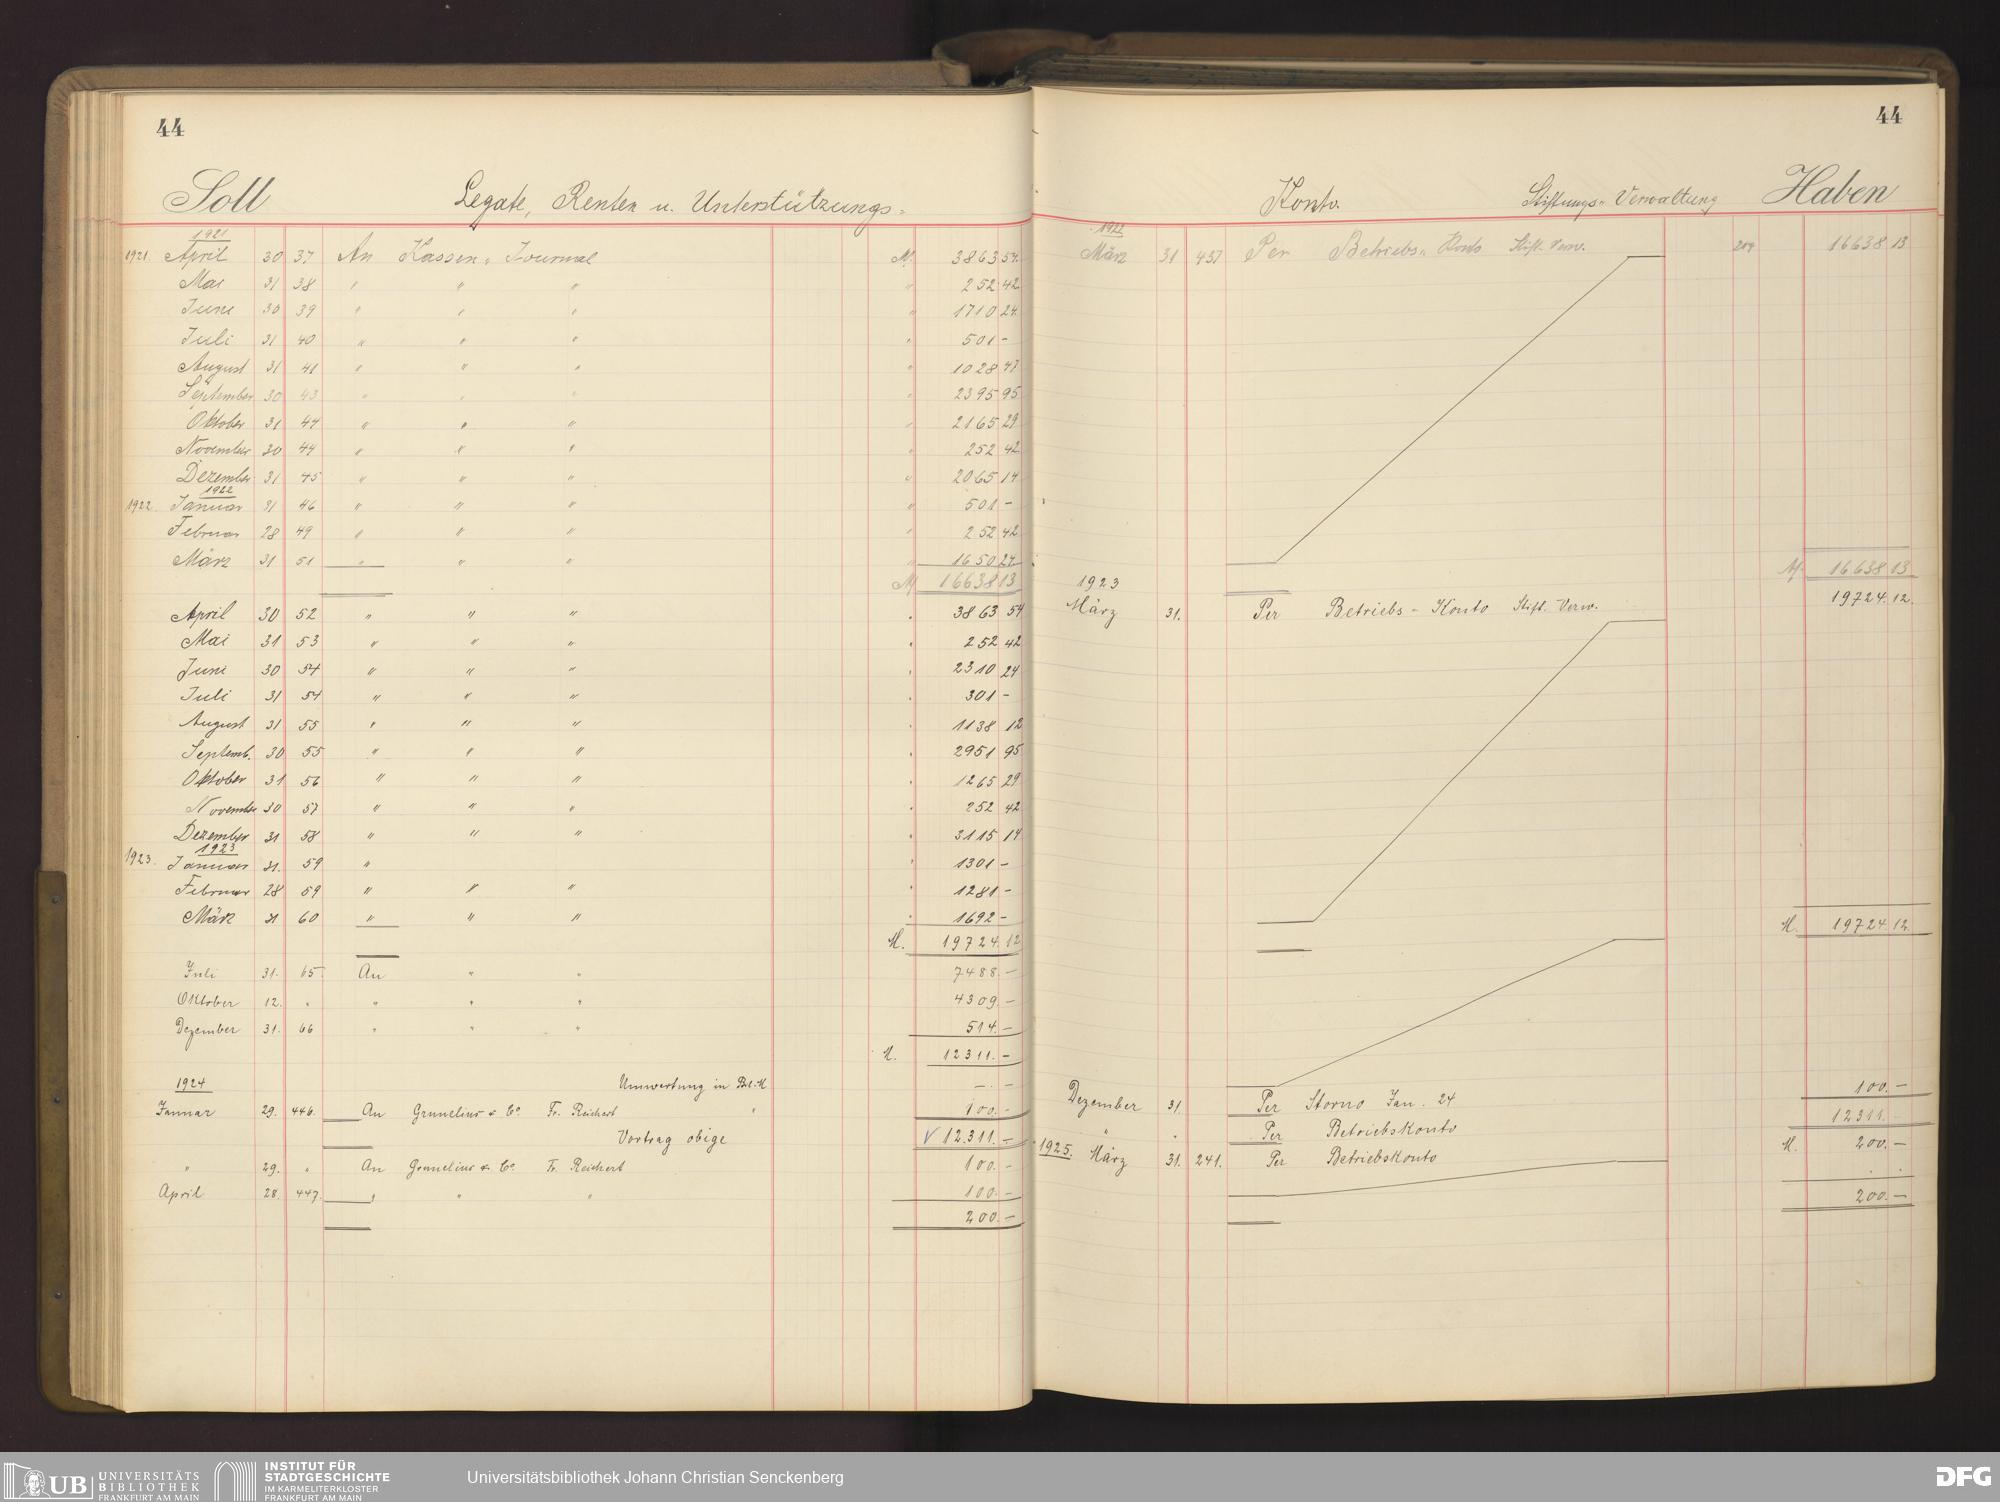 44
Soll Legate, Renten u. Unterstützungs-
1921
1921. April 30 37 An Kassen-Journal M. 3863 54
Mai 31 38 " " " " 252 42
Juni 30 39 " " " " 1710 24
Juli 31 40 " " " " 501 -
August 31 41 " " " " 1028 47
September 30 43 " " " " 2395 95
Oktober 31 44 " " " " 2165 29
November 30 44 " " " " 252 42
Dezember 31 45 " " " " 2065 14
1922
1922. Januar 31 46 " " " " 501 -
Februar 28 49 " " " " 252 42
März 31 51 " " " " 1650 24
M 16638 13
April 30 52 " " " " 3863 54
Mai 31 53 " " " " 252 42
Juni 30 54 " " " " 2310 24
Juli 31 54 " " " " 301 -
August 31 55 " " " " 1138 12
Septemb. 30 55 " " " " 2951 95
Oktober 31 56 " " " " 1265 29
November 30 57 " " " " 252 42
Dezember 31 58 " " " " 3115 14
1923
1923. Januar 31. 59 " " 1301 -
Februar 28 59 " " " " 1281 -
März 31 60 " " " " 1692 -
M. 19724. 12
Juli 31. 65. An " " 7488. -
Oktober 12. " " " " 4309. -
Dezember 31. 66 " " " 514. -
M. 12311. -
1924 Umwertung in Bl.-M -. -
Januar 29. 446. An Grunelius & Co Fr. Reichert " 100. -
Vortrag obige √ 12.311. -
" 29. " An Grunelius & Co Fr. Reichert 100. -
April 28. 447. " " " 100. -
200. -
44
Konto. Stiftungs-Verwaltung Haben
1922
März 31 437 Per Betriebs-Konto Stift. Verw. 204 16638 13
M 16638 13
1923
März 31. Per Betriebs-Konto Stift. Verw. 19724. 12.
M. 19724. 12.
Dezember 31. Per Storno Jan. 24 100. -
" " Per Betriebskonto 12311. -
1925. März 31. 241. Per Betriebskonto M. 200. -
200. -
UB UNIVERSITÄTS
BIBLIOTHEK
FRANKFURT AM MAIN
INSTITUT FÜR
STADTGESCHICHTE
IM KARMELITERKLOSTER
FRANKFURT AM MAIN
Universitätsbibliothek Johann Christian Senckenberg
DFG